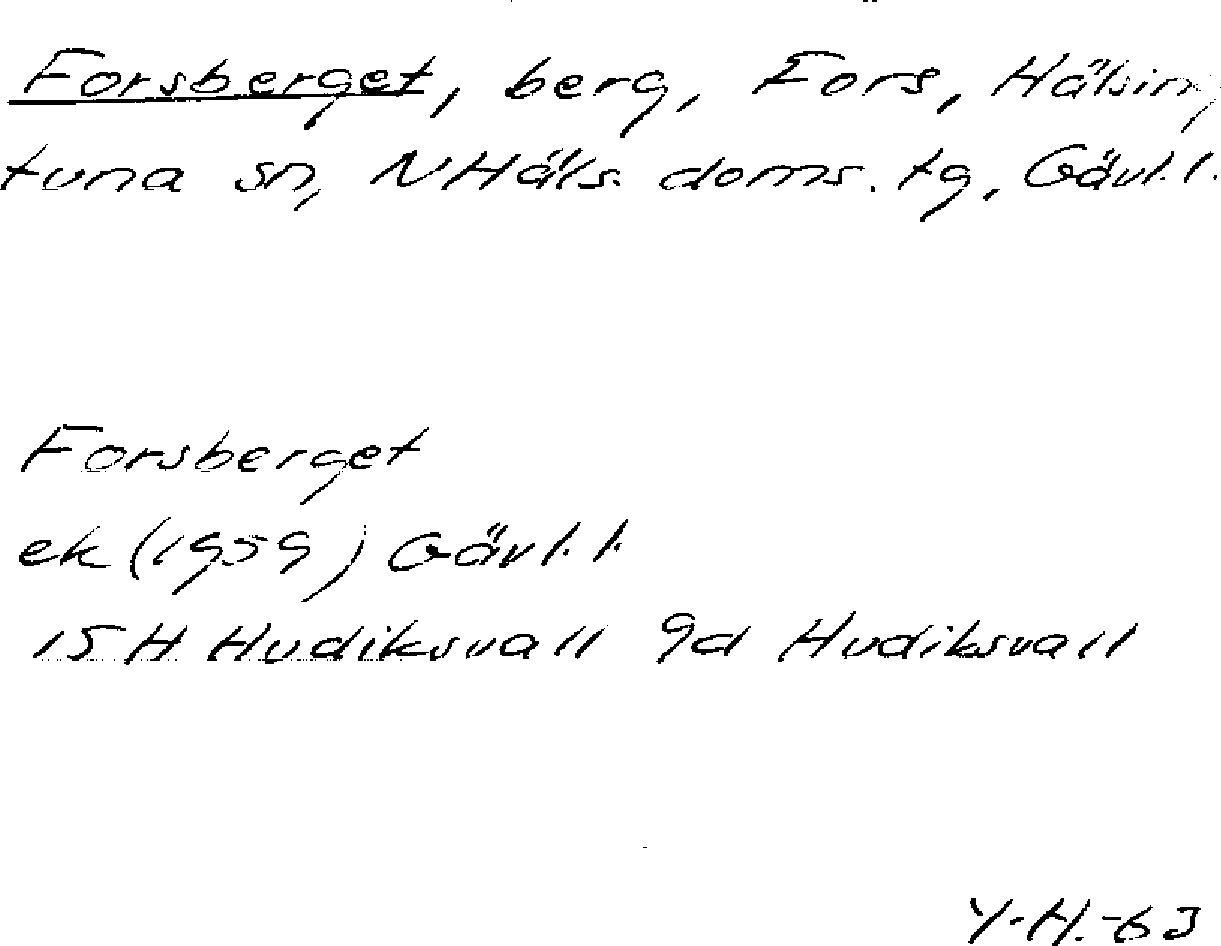 Forsberget, berg, Fors, Hälsing
tuna sn, NHäls. doms. tg, Gävl.l.
Forsberget
ek (1959) Gävl.l.
15H Hudiksvall 9d Hudiksvall
Y.H.-63